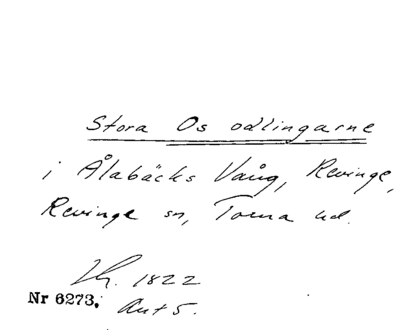 Stora Os odlingarne
i Ålabäcks Vång, Revinge,
Revinge sn, Torna hd.
1822
Nr 6273. Akt 5.